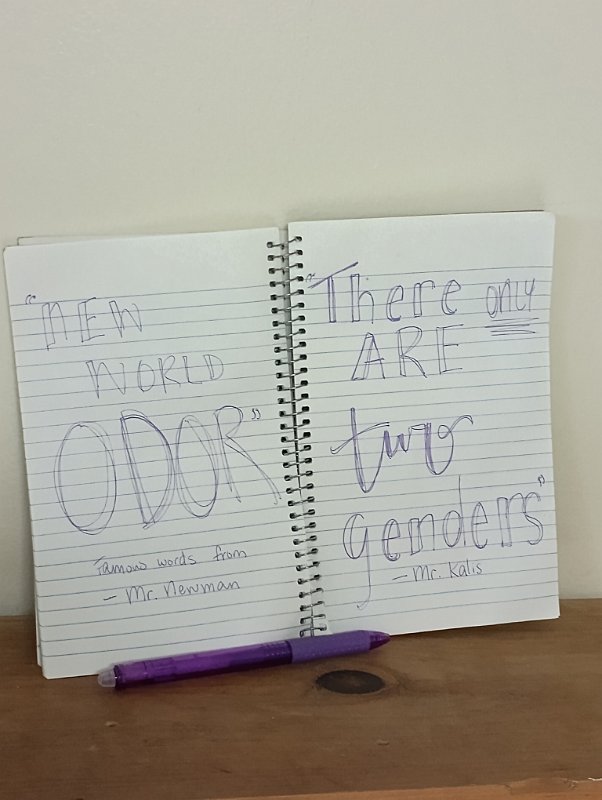 "NEW
WORLD
ODOR"
Famous words from
- Mr. Newman
"There only
ARE
two
genders"
- Mr. Kalis